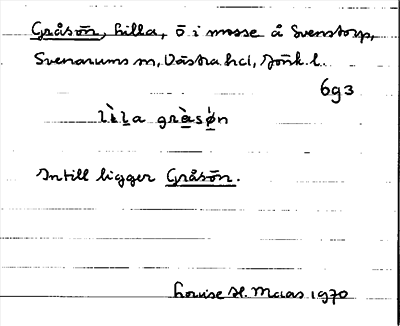 Gråsön, Lilla, ö i mosse å Svenstorp,
Svenarums sn, Västra hd, Jönk. l.
6g3
lìl̲a grå̀sǿn
Intill ligger Gråsön.
Louise H. Maas 1970